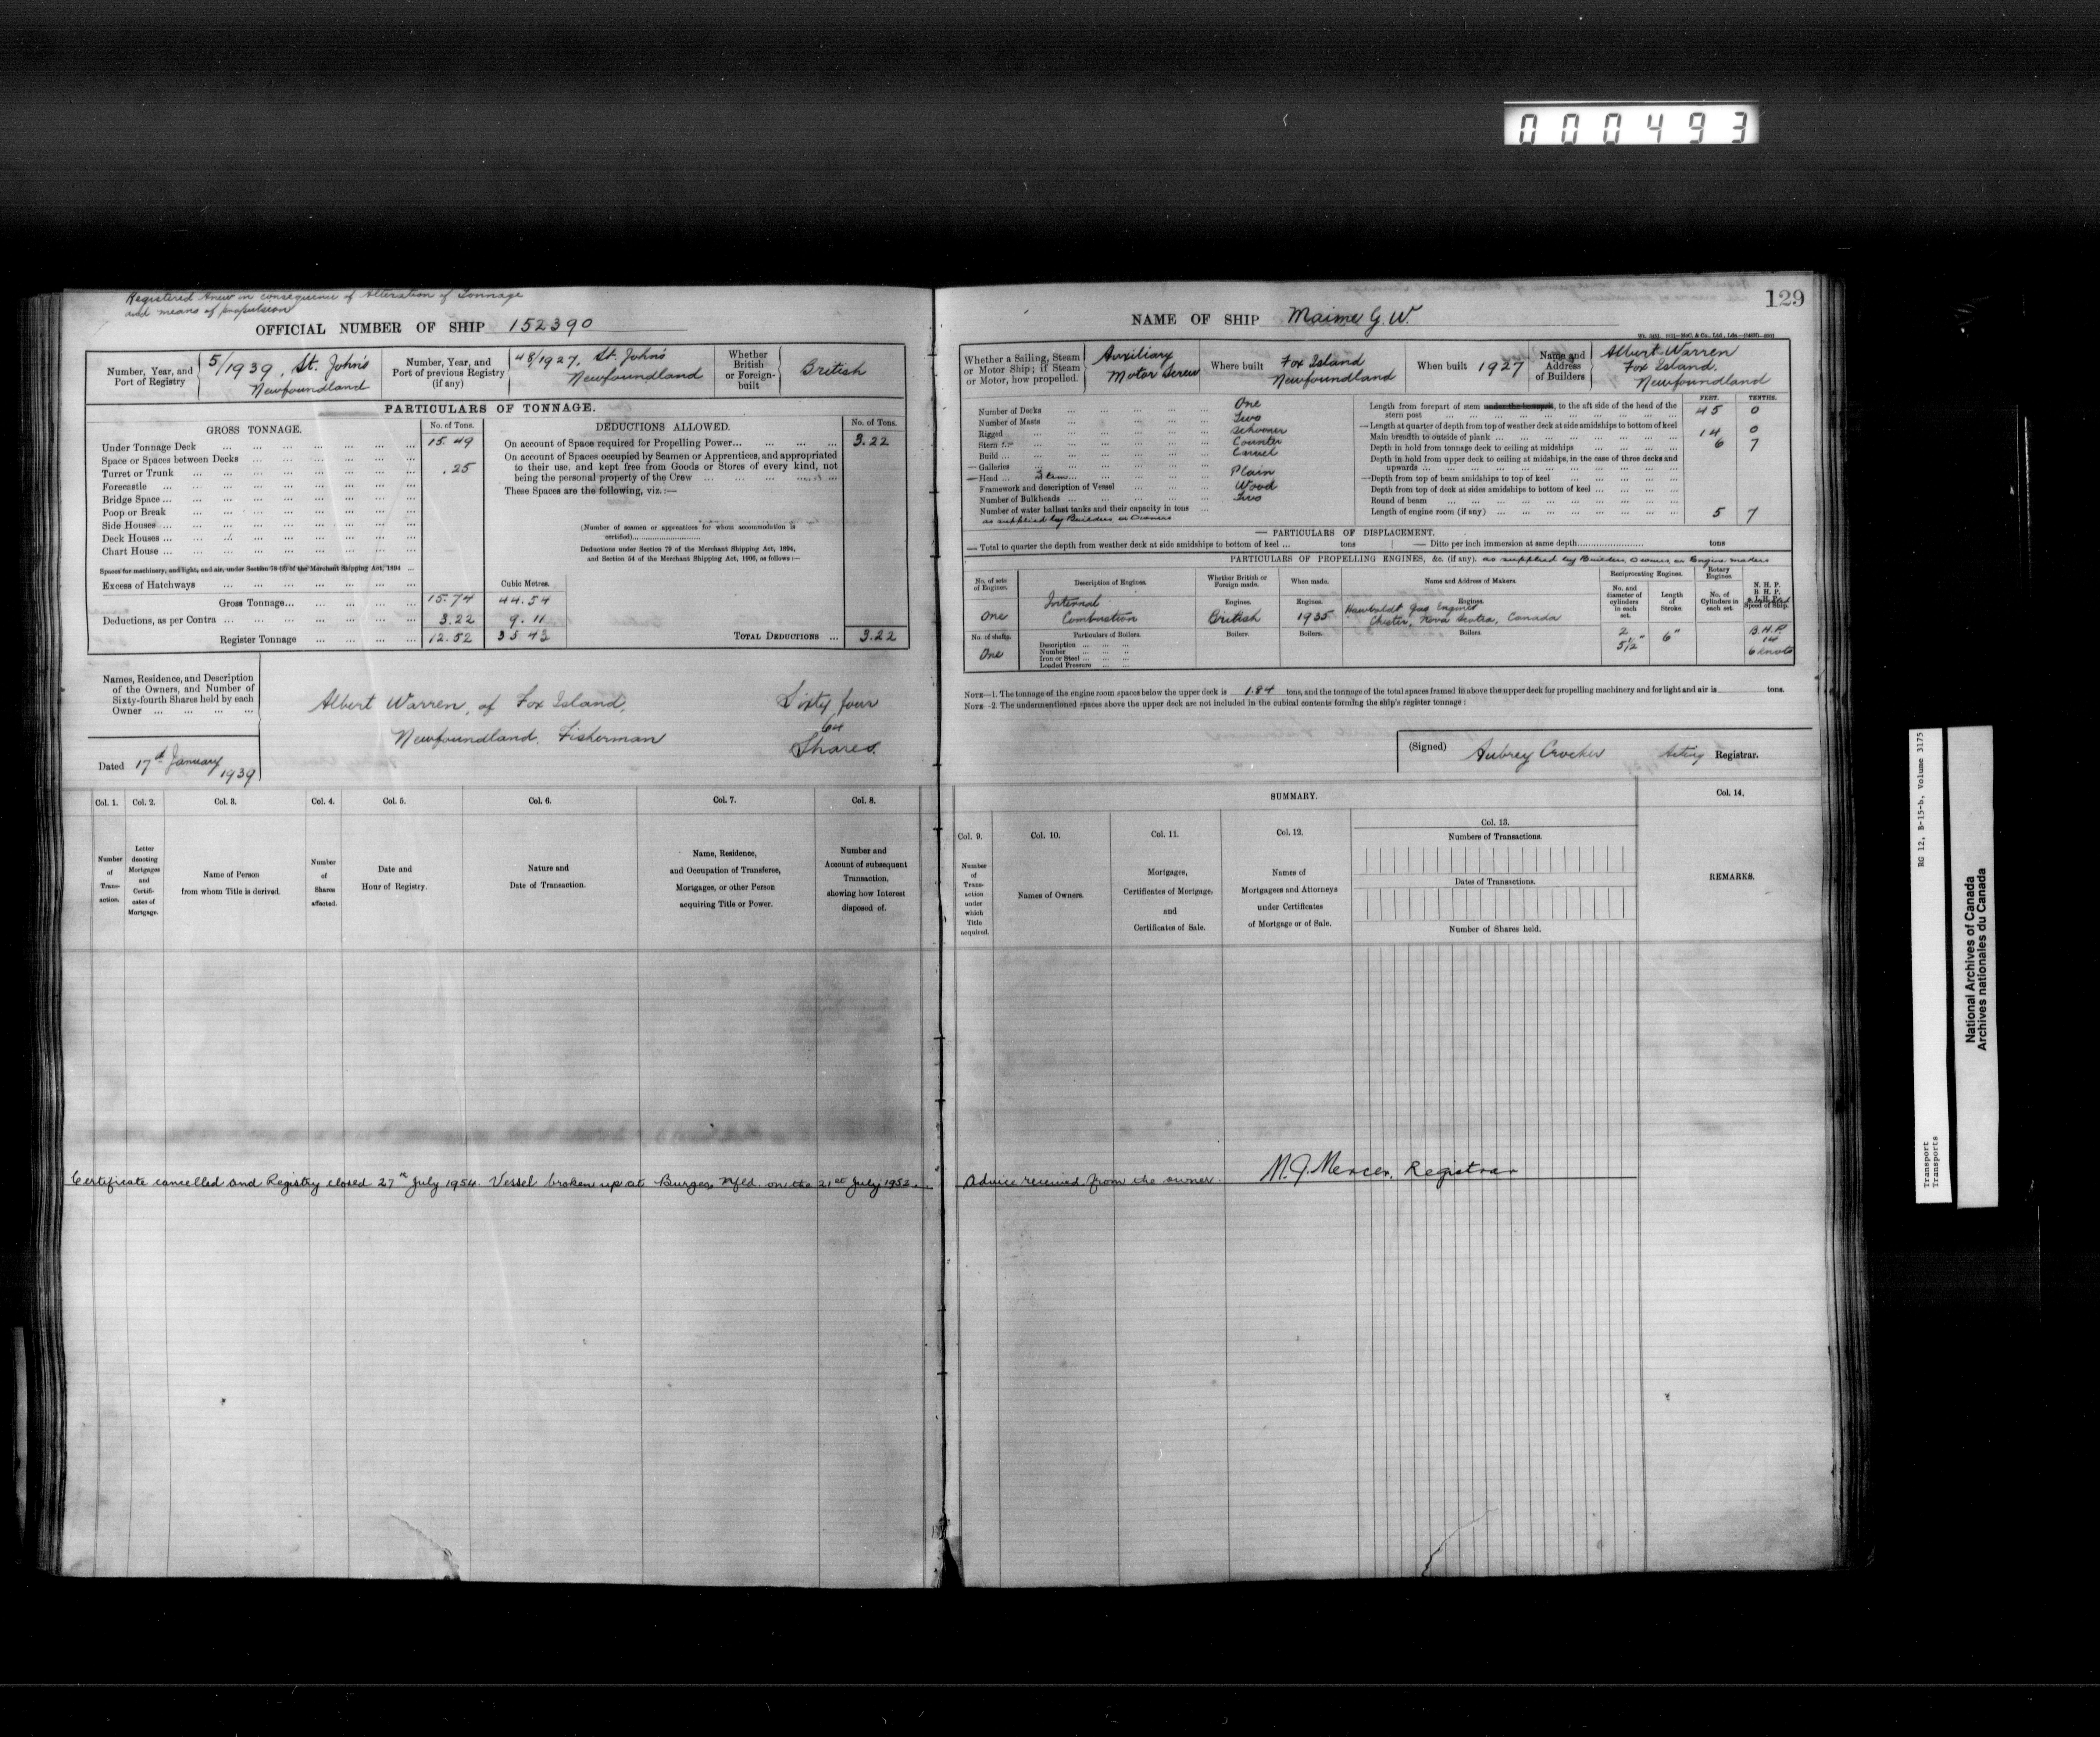 000493
Registered Anew in consequence of Alteration of Tonnage
and means of propulsion
OFFICIAL NUMBER OF SHIP 152390
Number, Year, and Port of Registry 5/1939, St. John's Newfoundland
Number, Year, and Port of previous Registry (if any) 48/1927, St. John's Newfoundland
Whether British or Foreign-built British
PARTICULARS OF TONNAGE.
GROSS TONNAGE. No. of Tons.
Under Tonnage Deck 15.49
Space or Spaces between Decks
Turret or Trunk .25
Forecastle
Bridge Space
Poop or Break
Side Houses
Deck Houses
Chart House
Spaces for machinery, and light, and air, under Section 78 (2) of the Merchant Shipping Act, 1894
Excess of Hatchways
Cubic Metres.
Gross Tonnage 15.74 44.54
Deductions, as per Contra 3.22 9.11
Register Tonnage 12.52 35.43
DEDUCTIONS ALLOWED. No. of Tons.
On account of Space required for Propelling Power 3.22
On account of Spaces occupied by Seamen or Apprentices, and appropriated
to their use, and kept free from Goods or Stores of every kind, not
being the personal property of the Crew
These Spaces are the following, viz.:—
(Number of seamen or apprentices for whom accommodation is
certified)
Deductions under Section 79 of the Merchant Shipping Act, 1894,
and Section 54 of the Merchant Shipping Act, 1906, as follows:—
TOTAL DEDUCTIONS 3.22
Names, Residence, and Description
of the Owners, and Number of
Sixty-fourth Shares held by each
Owner
Albert Warren, of Fox Island, Sixty four
64
Newfoundland. Fisherman Shares.
Dated 17th January 1939
Col. 1. Col. 2. Col. 3. Col. 4. Col. 5. Col. 6. Col. 7. Col. 8.
Number of Transaction.
Letter denoting Mortgages and Certificates of Mortgage.
Name of Person from whom Title is derived.
Number of Shares affected.
Date and Hour of Registry.
Nature and Date of Transaction.
Name, Residence, and Occupation of Transferee, Mortgages, or other Person acquiring Title or Power.
Number and Account of subsequent Transaction, showing how Interest disposed of.
Certificate cancelled and Registry closed 27th July 1954. Vessel broken up at Burgeo, Nfld. on the 21st July 1952.
129
NAME OF SHIP Maime G. W.
Whether a Sailing, Steam or Motor Ship; if Steam or Motor, how propelled. Auxiliary Motor Screw
Where built Fox Island Newfoundland
When built 1927
Name and Address of Builders Albert Warren Fox Island. Newfoundland
Number of Decks One
Number of Masts Two
Rigged Schooner
Stern Counter
Build Carvel
Galleries
Head Stem Plain
Framework and description of Vessel Wood
Number of Bulkheads Two
Number of water ballast tanks and their capacity in tons
as supplied by Builders or Owners
FEET. TENTHS.
Length from forepart of stem under the bowsprit, to the aft side of the head of the
stern post 45 0
Length at quarter of depth from top of weather deck at side amidships to bottom of keel
Main breadth to outside of plank 14 0
Depth in hold from tonnage deck to ceiling at midships 6 7
Depth in hold from upper deck to ceiling at midships, in the case of three decks and
upwards
Depth from top of beam amidships to top of keel
Depth from top of deck at sides amidships to bottom of keel
Round of beam
Length of engine room (if any) 5 7
PARTICULARS OF DISPLACEMENT.
Total to quarter the depth from weather deck at side amidships to bottom of keel ... tons
Ditto per inch immersion at same depth tons
PARTICULARS OF PROPELLING ENGINES, &c. (if any). as supplied by Builders, Owners, or Engine makers
No. of sets of Engines. Description of Engines. Whether British or Foreign made. When made. Name and Address of Makers.
Reciprocating Engines. Rotary Engines.
No. and diameter of cylinders in each set. Length of Stroke. No. of Cylinders in each set.
N. H. P. B. H. P. I. H. P. Speed of Ship.
Engines. Engines. Engines.
One Internal Combustion British 1935 Hawboldt Gas Engines Chester, Nova Scotia, Canada
2 5½" 6" B.H.P. 14 6 knots
No. of shafts. Particulars of Boilers. Boilers. Boilers. Boilers.
One
Description
Number
Iron or Steel
Loaded Pressure
NOTE—1. The tonnage of the engine room spaces below the upper deck is 1.84 tons, and the tonnage of the total spaces framed in above the upper deck for propelling machinery and for light and air is tons.
NOTE—2. The undermentioned spaces above the upper deck are not included in the cubical contents forming the ship's register tonnage:
(Signed) Aubrey Crocker Acting Registrar.
SUMMARY.
Col. 9. Col. 10. Col. 11. Col. 12. Col. 13. Col. 14.
Number of Transaction under which Title acquired.
Names of Owners.
Mortgages, Certificates of Mortgage, and Certificates of Sale.
Names of Mortgagees and Attorneys under Certificates of Mortgage or of Sale.
Numbers of Transactions.
Dates of Transactions.
Number of Shares held.
REMARKS.
Advice received from the owner. M. J. Mercer, Registrar
RG 12, B-15-b, Volume 3175
Transport
Transports
National Archives of Canada
Archives nationales du Canada